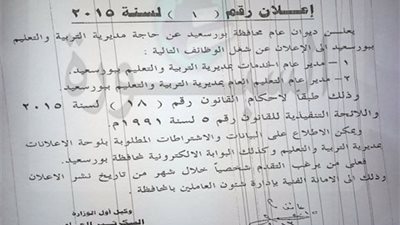 إعلان رقم ( ١ ) لسنة ٢٠١٥
يعلن ديوان عام محافظة بورسعيد عن حاجة مديرية التربية والتعليم
ببورسعيد الى الإعلان عن شغل الوظائف التالية :
١ – مدير عام الخدمات بمديرية التربية والتعليم ببورسعيد.
٢ – مدير عام التعليم العام بمديرية التربية والتعليم ببورسعيد.
وذلك طبقاً لأحكام القانون رقم ( ١٨ ) لسنة ٢٠١٥
واللائحة التنفيذية للقانون رقم ٥ لسنة ١٩٩١م.
ويمكن الاطلاع على البيانات والاشتراطات المطلوبة بلوحة الاعلانات
بمديرية التربية والتعليم وكذلك البوابة الالكترونية لمحافظة بورسعيد.
فعلى من يرغب التقدم شخصياً خلال شهر من تاريخ نشر الاعلان
وذلك الى الامانة الفنية بإدارة شئون العاملين بالمحافظة
وكيل أول الوزارة